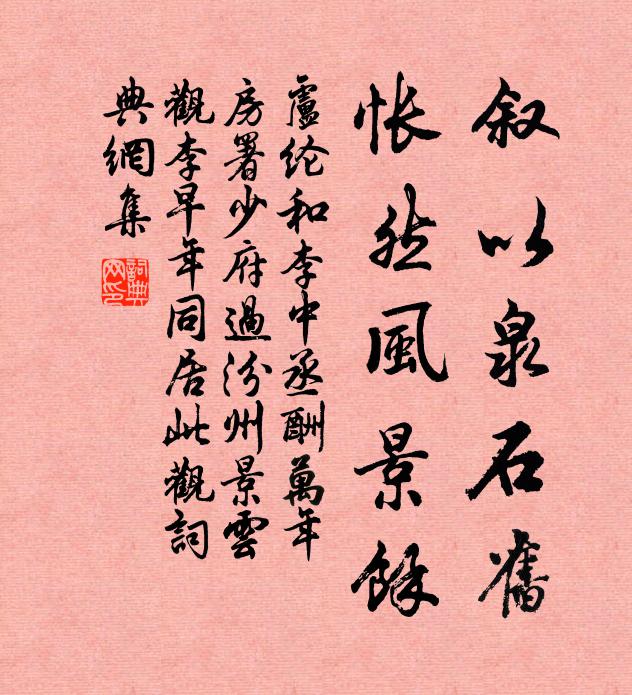 叙以泉石舊
悵然風景餘
盧纶和李中丞酬萬年
房署少府過汾州景雲
觀李早年同居此觀詞
典網集
詞典
网印